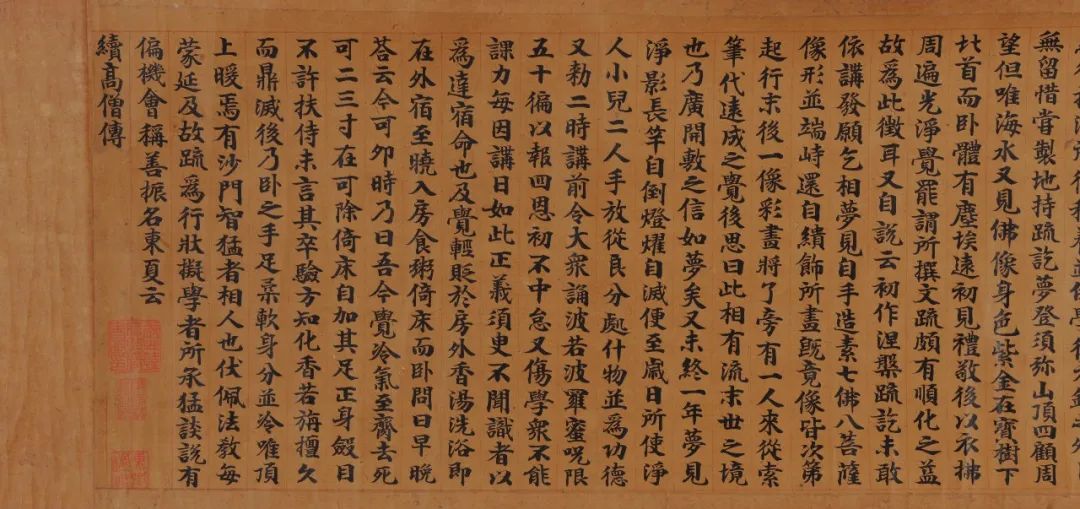 無留惜嘗製地持疏訖夢登須弥山頂四顧周
望但唯海水又見佛像身色紫金在寶樹下
北首而卧體有塵埃遠初見禮敬後以衣拂
周遍光淨覺罷謂所撰文疏頗有順化之益
故為此徵耳又自說云初作涅槃疏訖未敢
依講發願乞相夢見自手造素七佛八菩薩
像形並端峙還自繢飾所畫既竟像皆次第
起行末後一像彩畫將了旁有一人來從索
筆代遠成之覺後思曰此相有流末世之境
也乃廣開敷之信如夢矣又未終一年夢見
淨影長竿自倒燈燿自滅便至歲日所使淨
人小兒二人手放從良分處什物並為功德
又勑二時講前令大衆誦波若波羅蜜呪限
五十徧以報四恩初不中怠又傷學衆不能
課力每因講日如此正義須臾不聞識者以
為達宿命也及覺輕貶於房外香湯洗浴即
在外宿至曉入房食粥倚床而卧問曰早晚
荅云今可卯時乃曰吾今覺冷氣至齊去死
可二三寸在可除倚床自加其足正身斂目
不許扶侍未言其卒驗方知化香若旃檀久
而鼎滅後乃卧之手足柔軟身分並冷唯頂
上暖焉有沙門智猛者相人也伏佩法教每
蒙延及故疏為行狀擬學者所承猛談說有
偏機會稱善振名東夏云
續高僧傳